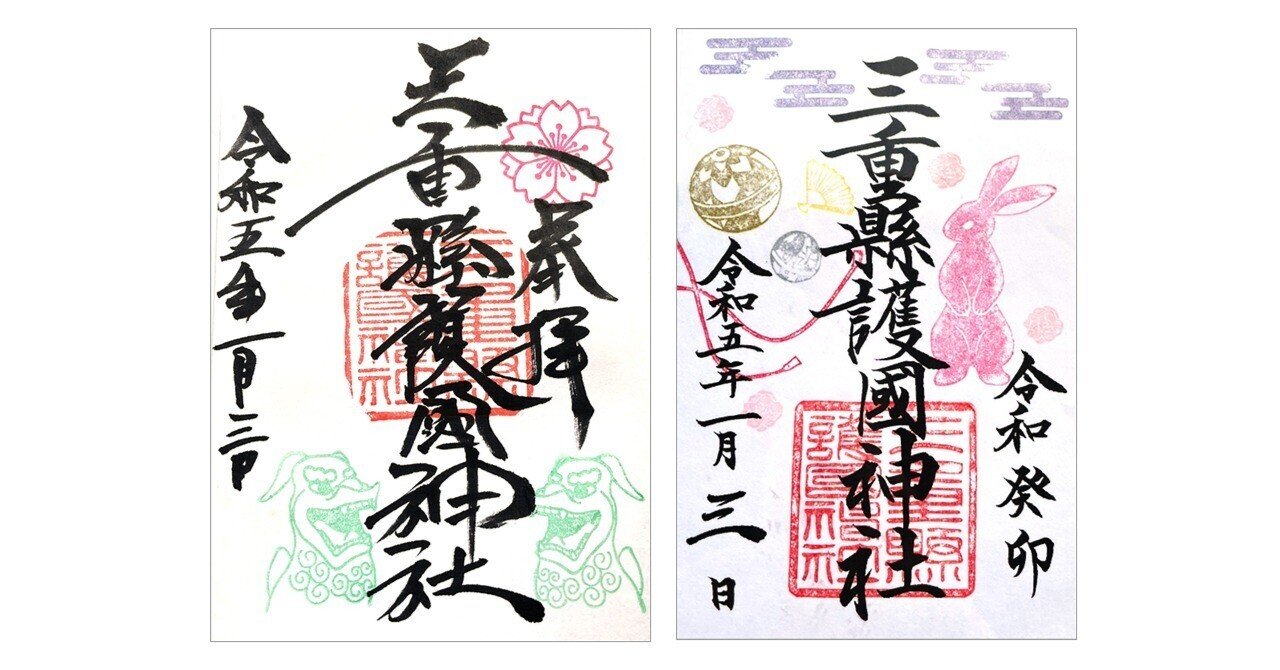 奉拝
三重縣護國神社
令和五年一月三日
令和癸卯
三重縣護國神社
令和五年一月三日